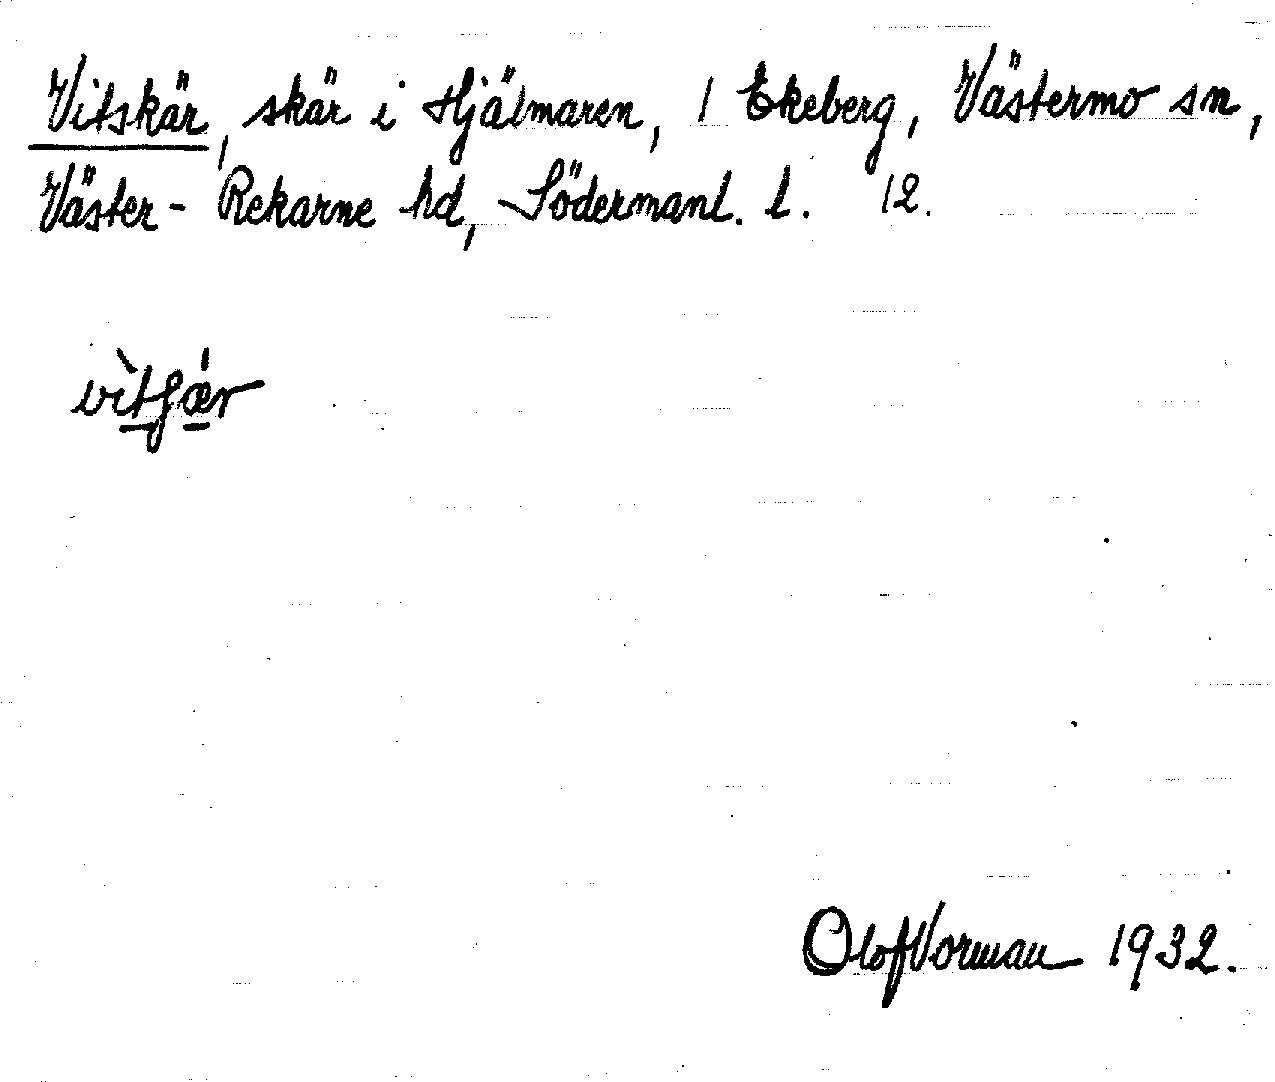 Vitskär, skär i Hjälmaren, / Ekeberg, Västermo sn,
Väster-Rekarne hd, Södermanl. l. 12.
vı̀tʃǽr
Olof Vorman 1932.